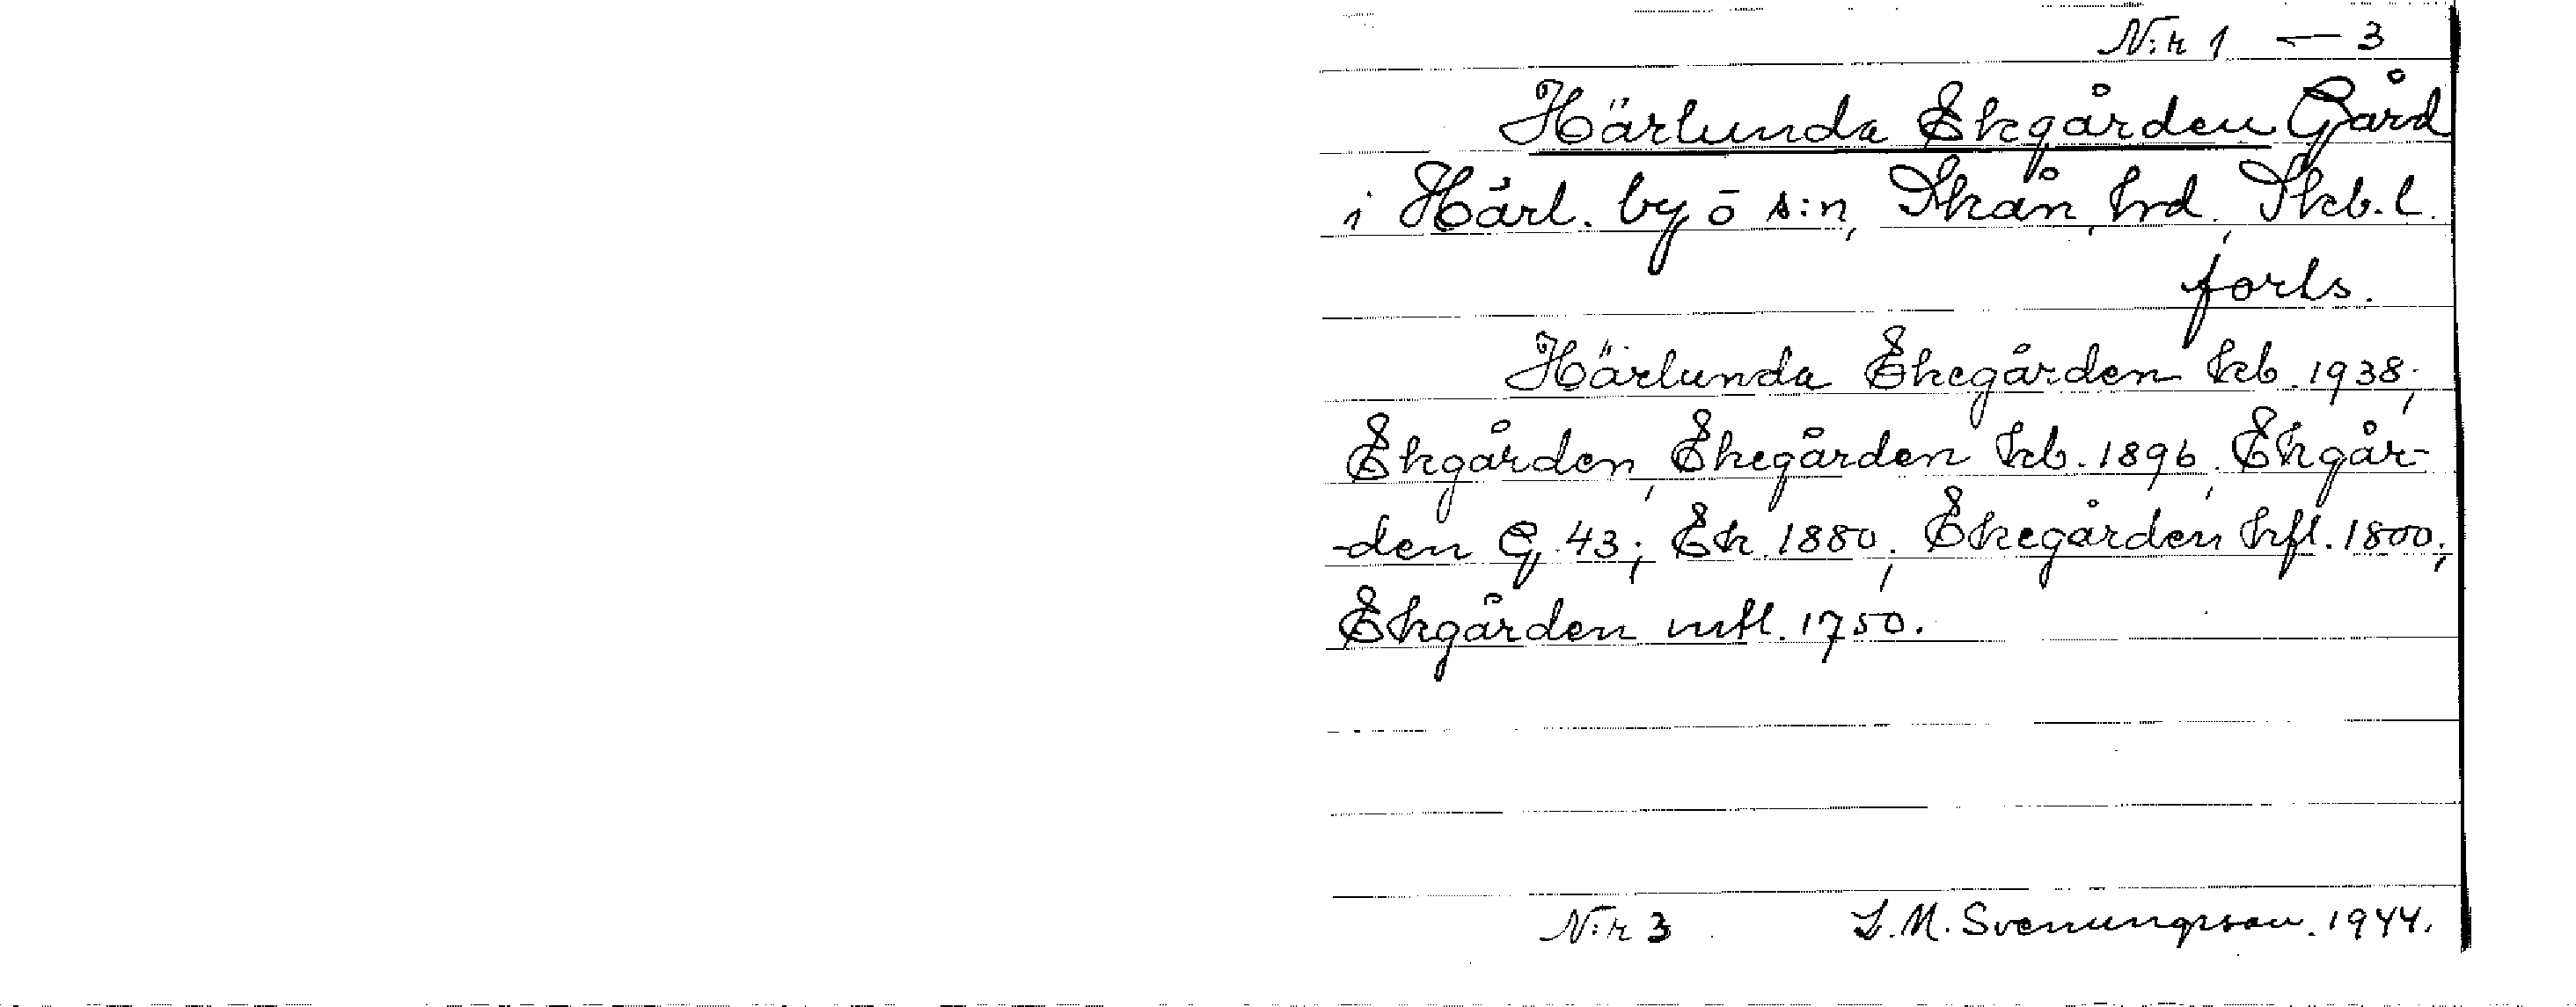 N:r 1 — 3
Härlunda Ekgården Gård
i Härl. by o s:n, Skån, hrd, Skb. l.
forts.
Härlunda Ekegården kb. 1938;
Ekgården, Ekegården kb. 1896; Ekgår-
-den G. 43; Ek. 1880; Ekegården hfl. 1800;
Ekgården mtl. 1750.
N:r 3 L. M. Svenungsson. 1944.